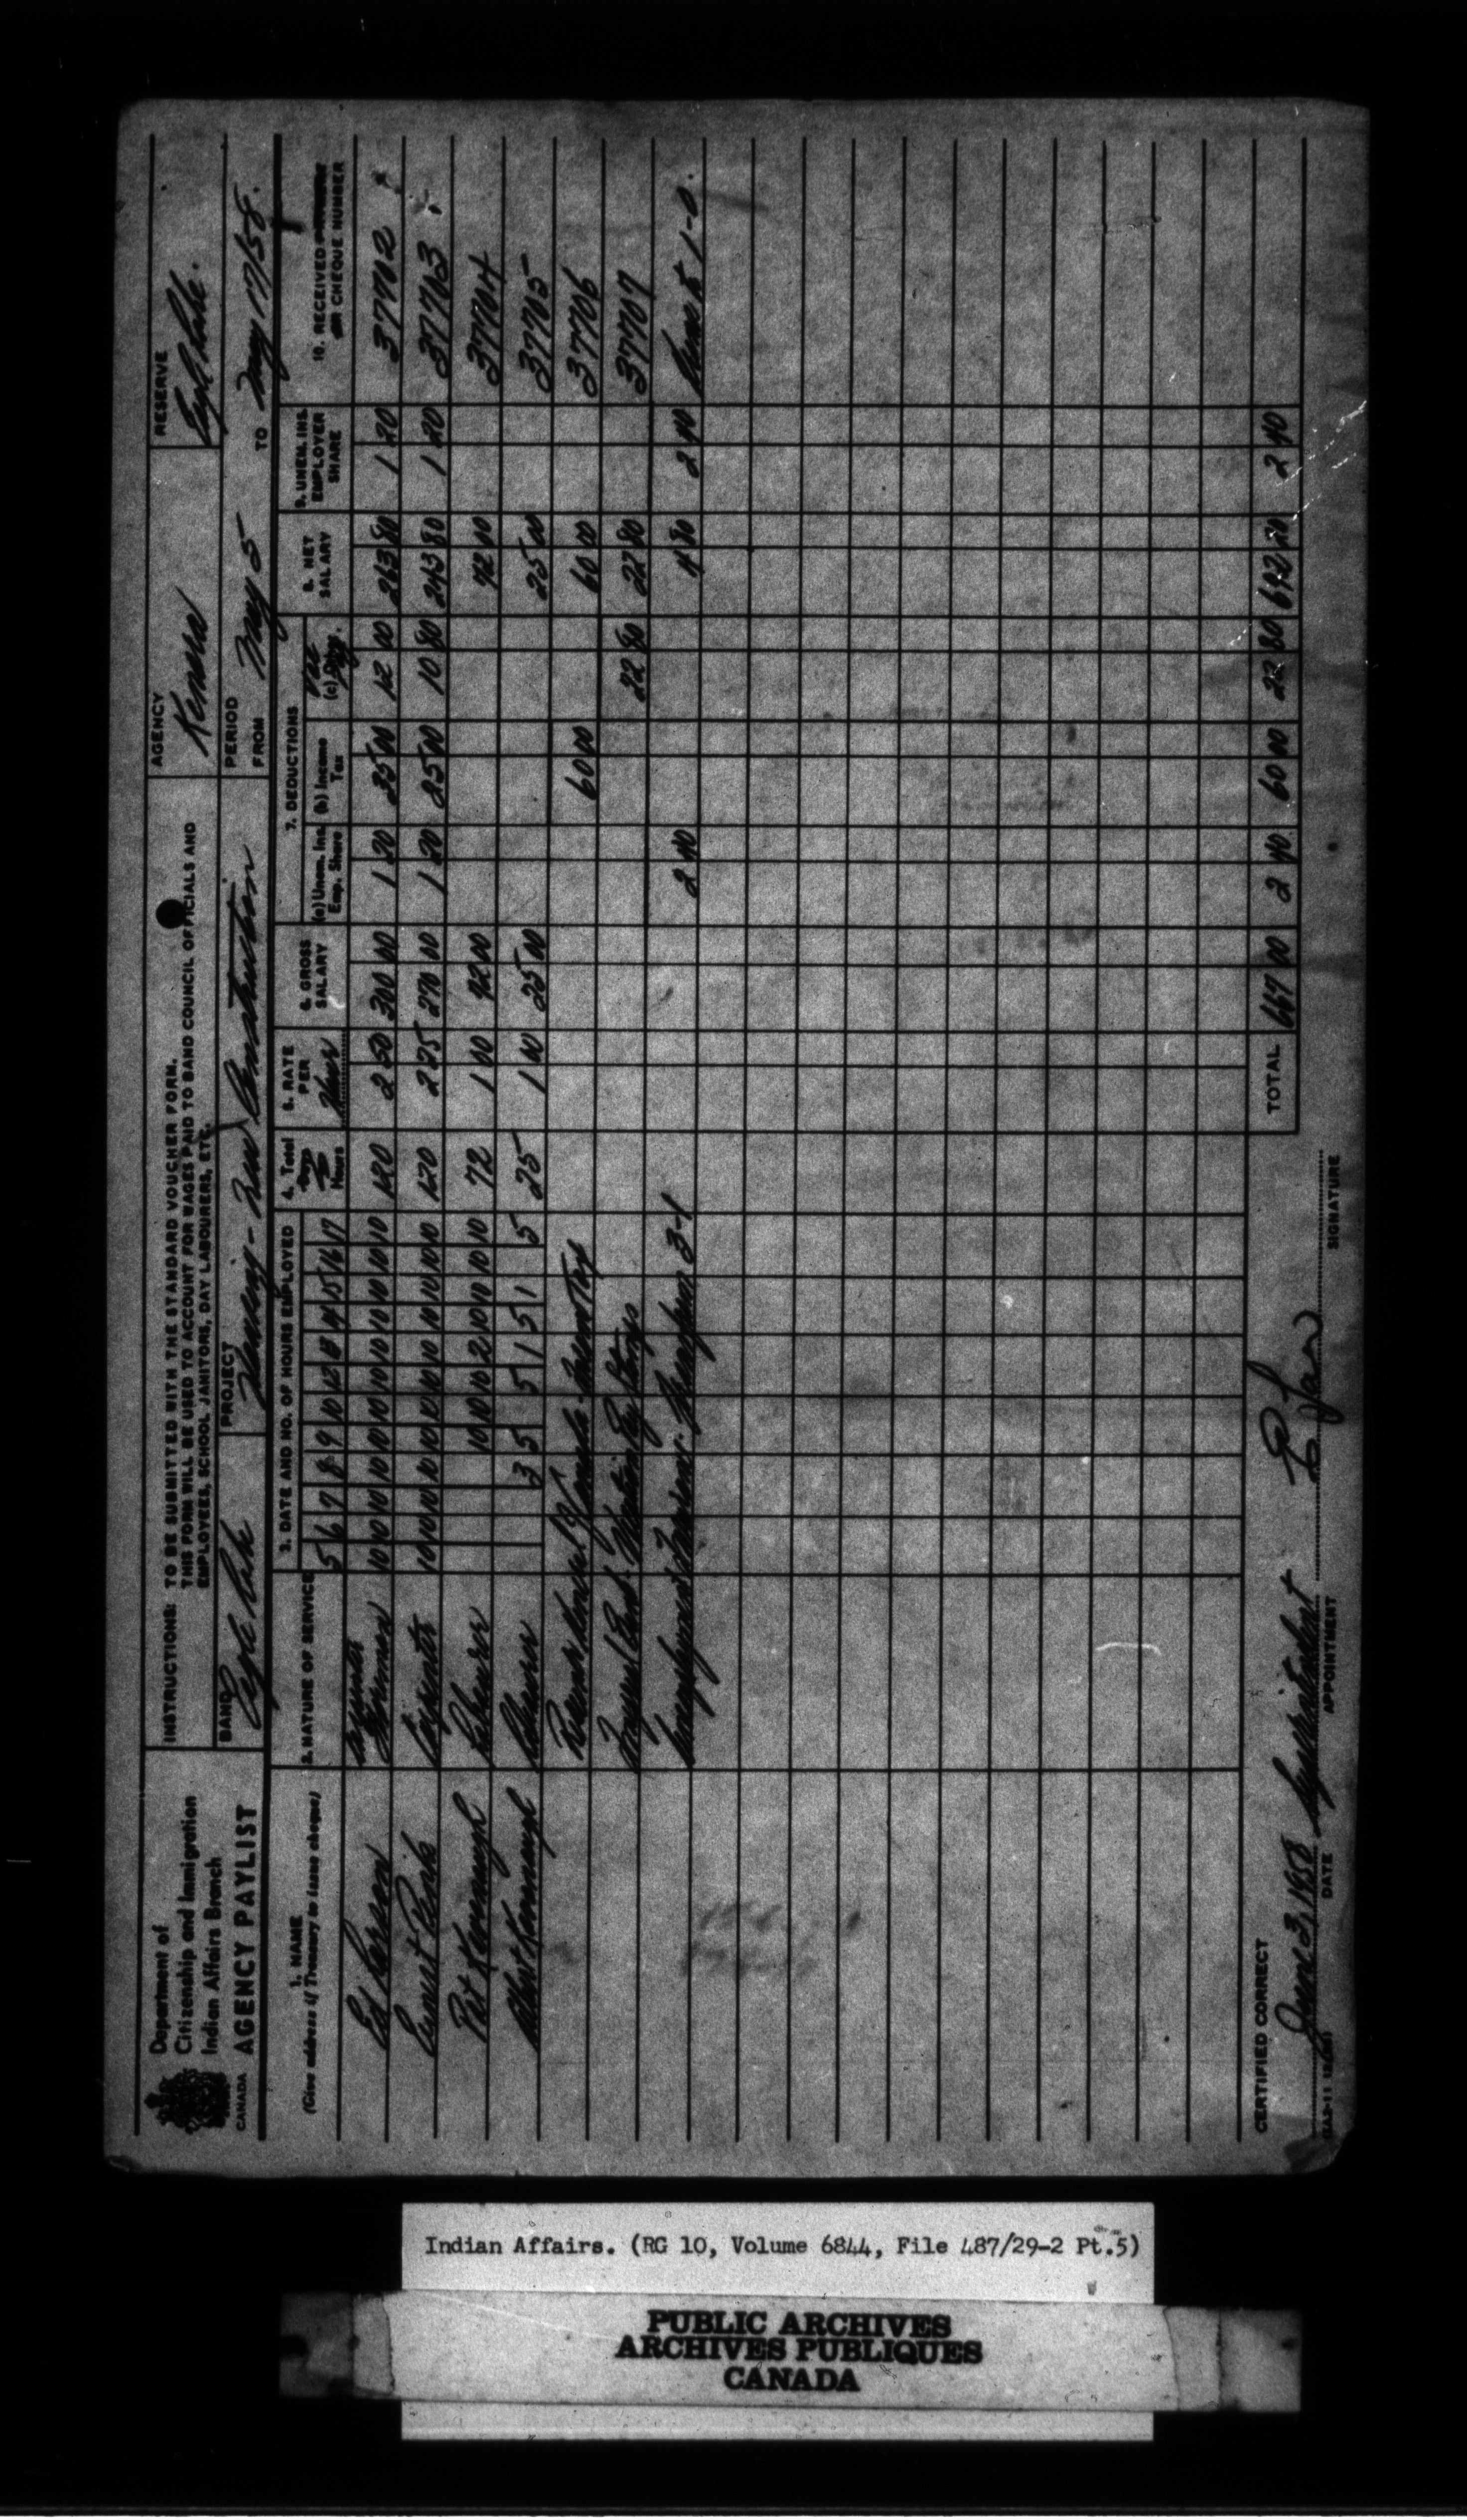 Department of
Citizenship and Immigration
Indian Affairs Branch
CANADA
AGENCY PAYLIST
INSTRUCTIONS: TO BE SUBMITTED WITH THE STANDARD VOUCHER FORM.
THIS FORM WILL BE USED TO ACCOUNT FOR WAGES PAID TO BAND COUNCIL OFFICIALS AND
EMPLOYEES, SCHOOL JANITORS, DAY LABOURERS, ETC.
AGENCY
Kenora
RESERVE
Eagle Lake.
BAND
Eagle Lake
PROJECT
Housing - New Construction
PERIOD
FROM May 5 TO May 17/58.
1. NAME
(Give address if Treasury to issue cheque)
2. NATURE OF SERVICE
3. DATE AND NO. OF HOURS EMPLOYED
5 6 7 8 9 10 12 13 14 15 16 17
4. Total Days Hours
5. RATE PER Hour
6. GROSS SALARY
7. DEDUCTIONS
(a) Unem. Ins. Emp. Share
(b) Income Tax
(c)
8. NET SALARY
9. UNEM. INS. EMPLOYER SHARE
10. RECEIVED CHEQUE NUMBER
Ed Foreman 10 10 10 10 10 10 10 10 10 10 10 10 120 2 50 300 00 1 20 35 00 12 00 263 80 1 20 37702
Ernest Carpenter 10 10 10 10 10 10 10 10 10 10 10 10 120 2 25 270 00 1 20 25 00 10 80 243 80 1 20 37703
Pat Kavanaugh Labourer 10 10 10 10 2 10 10 10 72 1 00 72 00 72 00 37704
Albert Kavanaugh Labourer 3 5 5 1 5 1 5 25 1 00 25 00 25 00 37705
Receiver General of Canada - Income Tax 60 00 60 00 37706
22 80 22 80 37707
Unemployment Insurance 3-1 2 40 4 80 2 40
TOTAL 667 00 2 40 60 00 22 80 692 20 2 40
CERTIFIED CORRECT
June 3, 1958 Superintendent
DATE
APPOINTMENT
SIGNATURE
Indian Affairs. (RG 10, Volume 6844, File 487/29-2 Pt.5)
PUBLIC ARCHIVES
ARCHIVES PUBLIQUES
CANADA